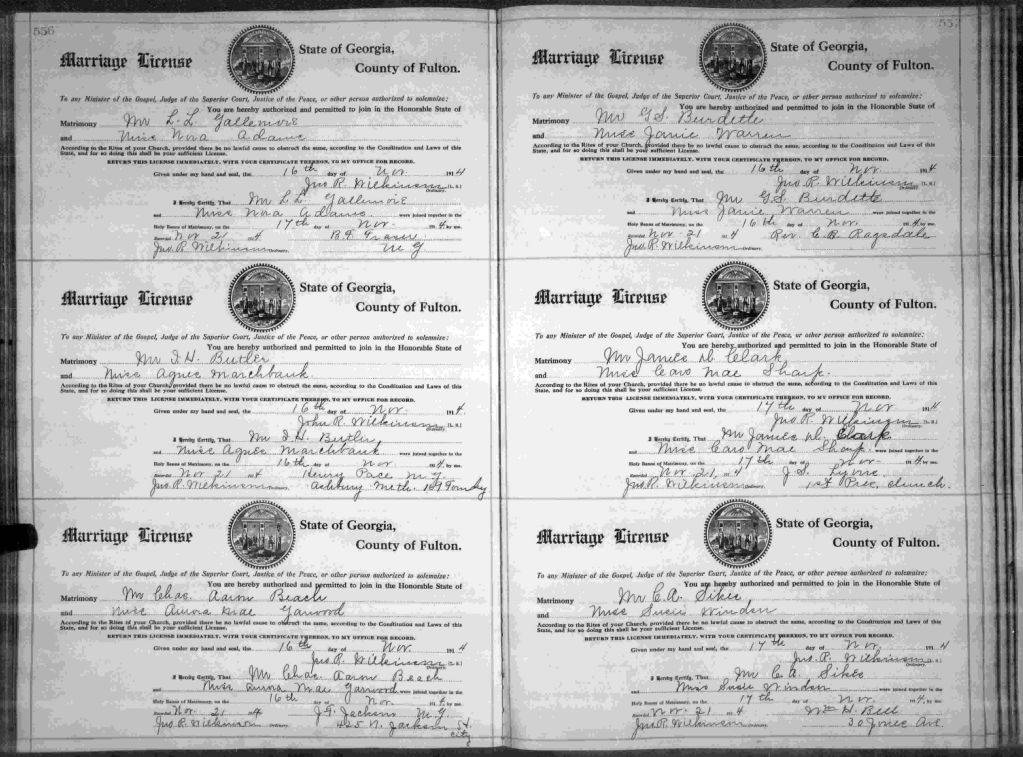 556
Marriage License
State of Georgia,
County of Fulton.
To any Minister of the Gospel, Judge of the Superior Court, Justice of the Peace, or other person authorized to solemnize:
You are hereby authorized and permitted to join in the Honorable State of
Matrimony Mr L. L. Gallemore
and Miss Nora Adams
According to the Rites of your Church, provided there be no lawful cause to obstruct the same, according to the Constitution and Laws of this
State, and for so doing this shall be your sufficient License.
RETURN THIS LICENSE IMMEDIATELY, WITH YOUR CERTIFICATE THEREON, TO MY OFFICE FOR RECORD.
Given under my hand and seal, the 16th day of Nov. 1914
Jno. R. Wilkinson [L. S.]
Ordinary.
I Hereby Certify, That Mr L. L. Gallemore
and Miss Nora Adams were joined together in the
Holy Banns of Matrimony, on the 17th day of Nov. 1914, by me.
Recorded Nov 21 1914 B. F. Fraser
Jno. R. Wilkinson Ordinary. M G
Marriage License
State of Georgia,
County of Fulton.
To any Minister of the Gospel, Judge of the Superior Court, Justice of the Peace, or other person authorized to solemnize:
You are hereby authorized and permitted to join in the Honorable State of
Matrimony Mr I. H. Butler
and Miss Agnes Marchbank
According to the Rites of your Church, provided there be no lawful cause to obstruct the same, according to the Constitution and Laws of this
State, and for so doing this shall be your sufficient License.
RETURN THIS LICENSE IMMEDIATELY, WITH YOUR CERTIFICATE THEREON, TO MY OFFICE FOR RECORD.
Given under my hand and seal, the 16th day of Nov. 1914
John R. Wilkinson [L. S.]
Ordinary.
I Hereby Certify, That Mr I. H. Butler
and Miss Agnes Marchbank were joined together in the
Holy Banns of Matrimony, on the 16th day of Nov. 1914, by me.
Recorded Nov 21 1914 Henry Pace M G
Jno. R. Wilkinson Ordinary. Meth.
Marriage License
State of Georgia,
County of Fulton.
To any Minister of the Gospel, Judge of the Superior Court, Justice of the Peace, or other person authorized to solemnize:
You are hereby authorized and permitted to join in the Honorable State of
Matrimony Mr Chas. Aaron Beach
and Miss Aurora Mae Garwood
According to the Rites of your Church, provided there be no lawful cause to obstruct the same, according to the Constitution and Laws of this
State, and for so doing this shall be your sufficient License.
RETURN THIS LICENSE IMMEDIATELY, WITH YOUR CERTIFICATE THEREON, TO MY OFFICE FOR RECORD.
Given under my hand and seal, the 16th day of Nov. 1914
Jno. R. Wilkinson [L. S.]
Ordinary.
I Hereby Certify, That Mr Chas. Aaron Beach
and Miss Aurora Mae Garwood were joined together in the
Holy Banns of Matrimony, on the 16th day of Nov. 1914, by me.
Recorded Nov. 21 1914 J. F. Jackson M. G.
Jno R. Wilkinson Ordinary. 425 N. Jackson St.
City
557
Marriage License
State of Georgia,
County of Fulton.
To any Minister of the Gospel, Judge of the Superior Court, Justice of the Peace, or other person authorized to solemnize:
You are hereby authorized and permitted to join in the Honorable State of
Matrimony Mr G. S. Burdette
and Miss Janie Warren
According to the Rites of your Church, provided there be no lawful cause to obstruct the same, according to the Constitution and Laws of this
State, and for so doing this shall be your sufficient License.
RETURN THIS LICENSE IMMEDIATELY, WITH YOUR CERTIFICATE THEREON, TO MY OFFICE FOR RECORD.
Given under my hand and seal, the 16th day of Nov. 1914
Jno. R. Wilkinson [L. S.]
Ordinary.
I Hereby Certify, That Mr G. S. Burdette
and Miss Janie Warren were joined together in the
Holy Banns of Matrimony, on the 16th day of Nov. 1914, by me.
Recorded Nov. 21 1914 Rev. C. B. Ragsdale
Jno. R. Wilkinson Ordinary.
Marriage License
State of Georgia,
County of Fulton.
To any Minister of the Gospel, Judge of the Superior Court, Justice of the Peace, or other person authorized to solemnize:
You are hereby authorized and permitted to join in the Honorable State of
Matrimony Mr James D. Clark
and Miss Caro Mae Sharp.
According to the Rites of your Church, provided there be no lawful cause to obstruct the same, according to the Constitution and Laws of this
State, and for so doing this shall be your sufficient License.
RETURN THIS LICENSE IMMEDIATELY, WITH YOUR CERTIFICATE THEREON, TO MY OFFICE FOR RECORD.
Given under my hand and seal, the 17th day of Nov 1914
Jno. R. Wilkinson [L. S.]
Ordinary.
I Hereby Certify, That Mr James D. Clark
and Miss Caro Mae Sharp were joined together in the
Holy Banns of Matrimony, on the 17th day of Nov. 1914, by me.
Recorded Nov 21, 1914 J. S. Lyons
Jno. R. Wilkinson Ordinary. 1st Pres. Church.
Marriage License
State of Georgia,
County of Fulton.
To any Minister of the Gospel, Judge of the Superior Court, Justice of the Peace, or other person authorized to solemnize:
You are hereby authorized and permitted to join in the Honorable State of
Matrimony Mr C. A. Sikes
and Miss Susie Winden
According to the Rites of your Church, provided there be no lawful cause to obstruct the same, according to the Constitution and Laws of this
State, and for so doing this shall be your sufficient License.
RETURN THIS LICENSE IMMEDIATELY, WITH YOUR CERTIFICATE THEREON, TO MY OFFICE FOR RECORD.
Given under my hand and seal, the 17th day of Nov. 1914
Jno. R. Wilkinson [L. S.]
Ordinary.
I Hereby Certify, That Mr C. A. Sikes
and Miss Susie Winden were joined together in the
Holy Banns of Matrimony, on the 17th day of Nov 1914, by me.
Recorded Nov. 21 1914 Wm H. Bell
Jno. R. Wilkinson Ordinary. 30 Jones Ave.